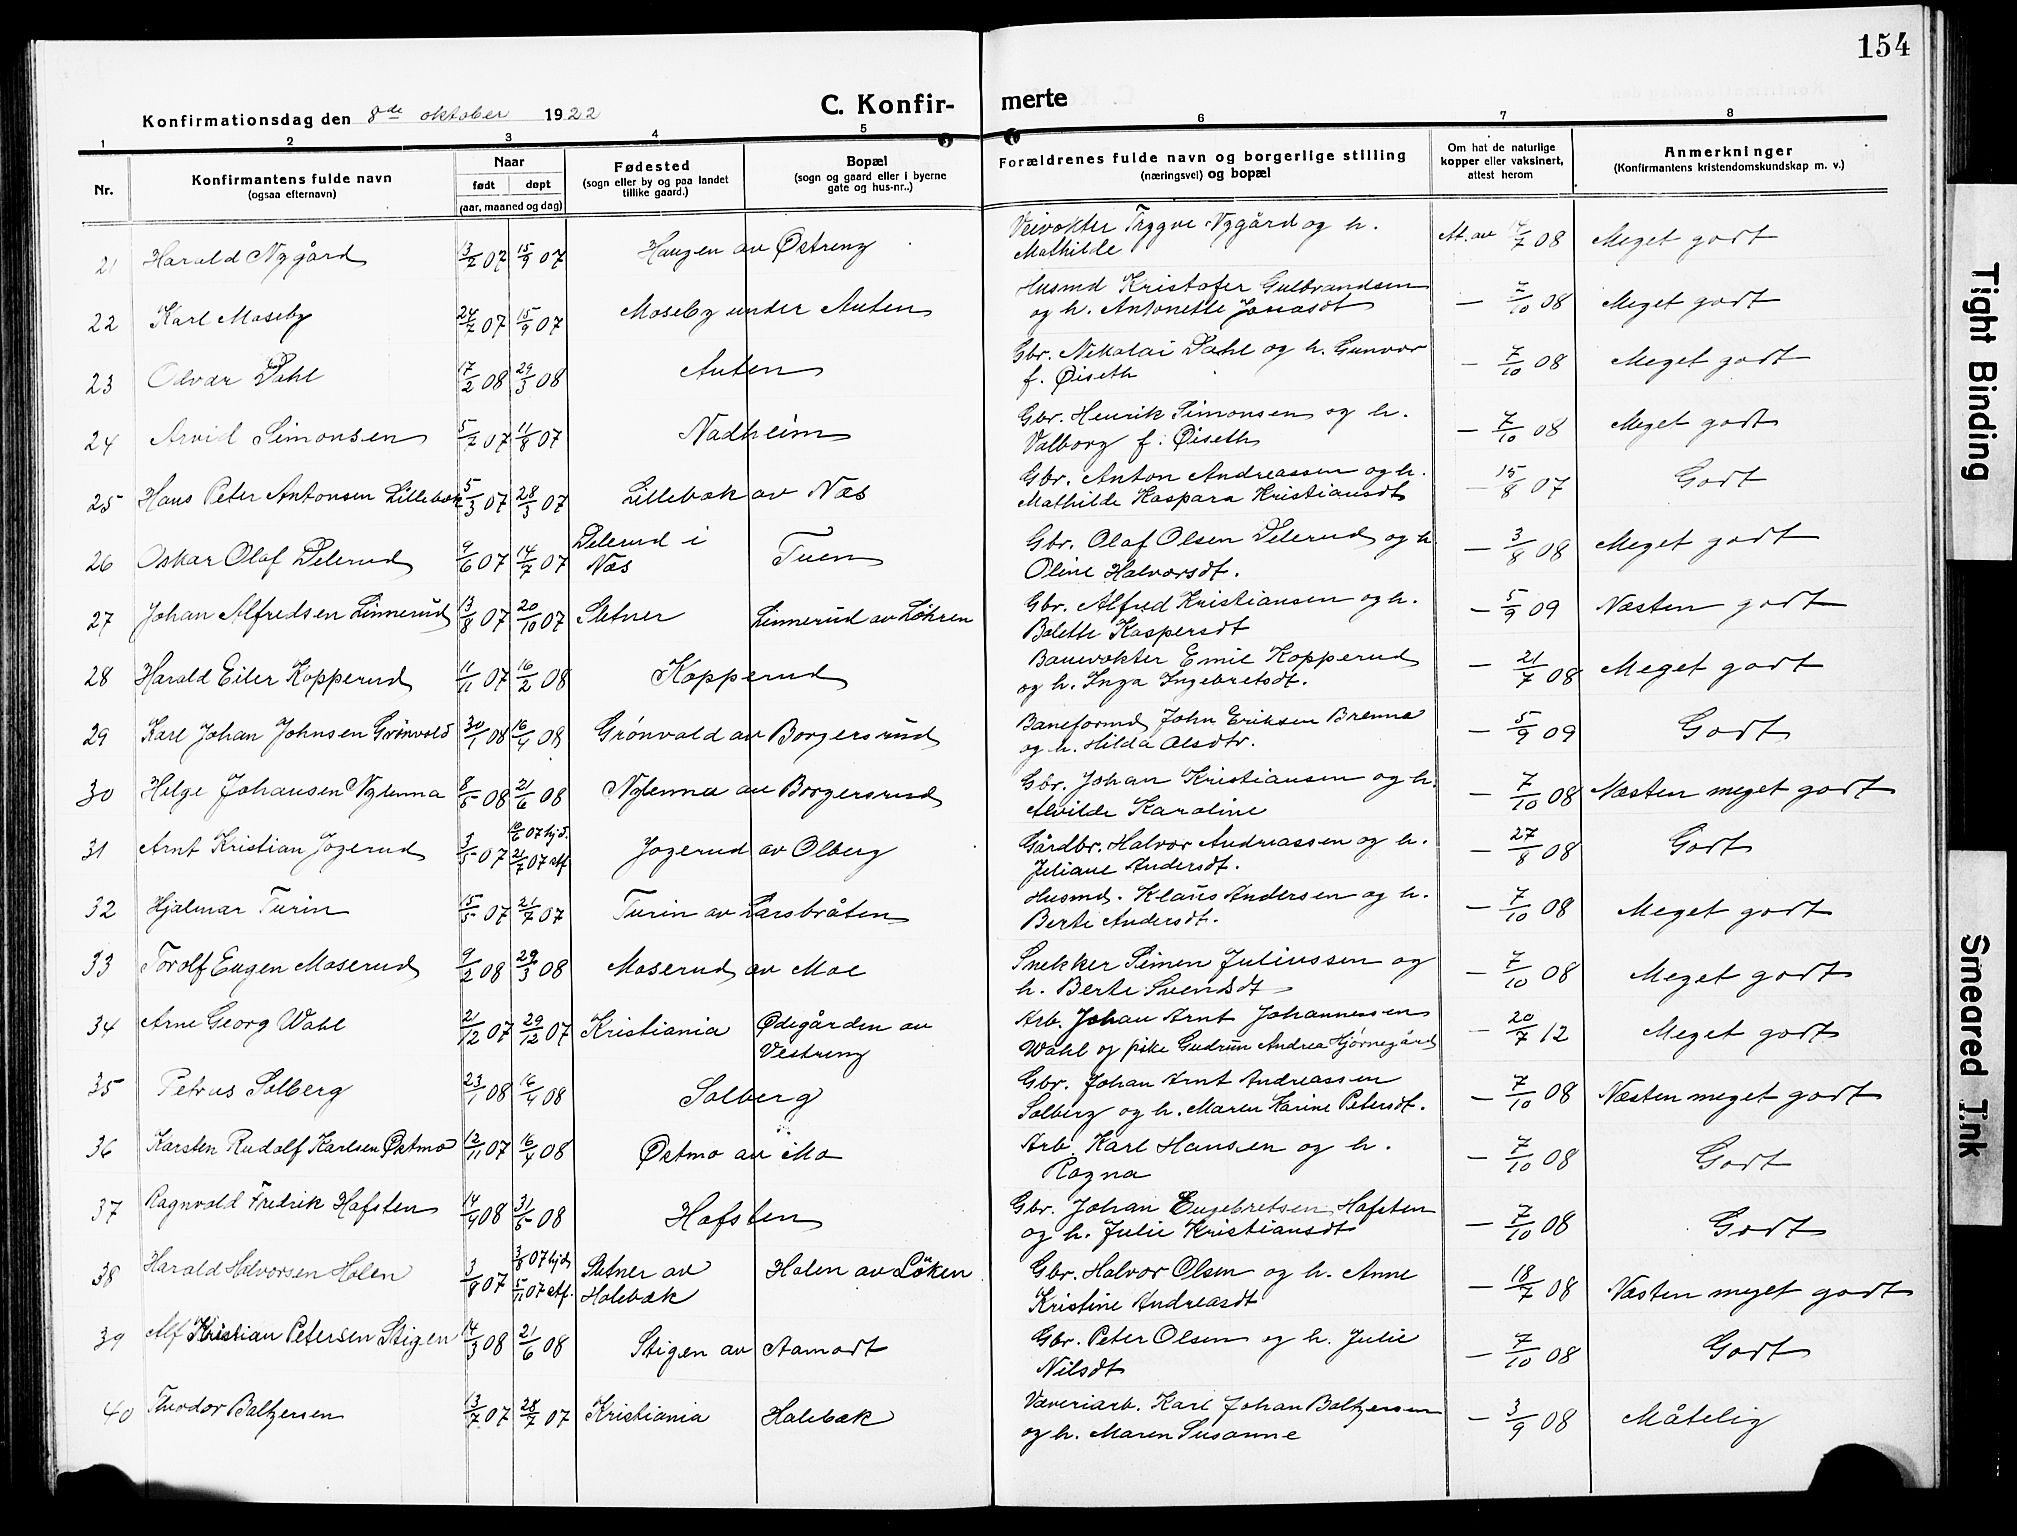 154
Konfirmationsdag den 8de oktober 1922
C. Konfir- merte
1 2 3 4 5 6 7 8
Nr.
Konfirmantens fulde navn
(ogsaa efternavn)
Naar
født døpt
(aar, maaned og dag)
Fødested
(sogn eller by og paa landet
tillike gaard.)
Bopæl
(sogn og gaard eller i byerne
gate og hus-nr..)
Forældrenes fulde navn og borgerlige stilling
(næringsvei) og bopæl
Om hat de naturlige
kopper eller vaksinert,
attest herom
Anmerkninger
(Konfirmantens kristendomskundskap m. v.)
21 Harald Nygård 13/2 07 15/9 07 Haugen av Østreng Veivokter Trygve Nygård og h. M. av 17/7 08 Meget godt
Mathilde
22 Karl Moseby 24/7 07 15/9 07 Moseby under Auten Husmd Kristofer Gulbrandsen — 7/10 08 Meget godt
og h. Antonette Jonasdt
23 Olvar Dahl 17/2 08 29/3 08 Auten Gbr. Nikolai Dahl og h. Gunvor — 7/10 08 Meget godt
f. Øiseth
24 Arvid Simonsen 5/7 07 11/8 07 Nadheim Gbr. Henrik Simonsen og h. — 7/10 08 Meget godt
Valborg f. Øiseth
25 Hans Peter Antonsen Lillebæk 5/3 07 28/3 07 Lillebæk av Næs Gbr. Anton Andreassen og h. — 15/8 07 Godt
Mathilde Kaspara Kristiansdt
26 Oskar Olaf Delerud 9/6 07 14/7 07 Delerud i Næs Tuen Gbr. Olaf Olsen Delerud og h. — 3/8 08 Meget godt
Oline Halvorsdt.
27 Johan Alfredsen Linnerud 13/8 07 20/10 07 Sletner Linnerud av Løkren Gbr. Alfred Kristiansen og h. — 5/9 09 Næsten godt
Bolette Kaspersdt
28 Harald Eiler Kopperud 11/11 07 16/2 08 Kopperud Banevokter Emil Kopperud — 21/7 08 Meget godt
og h. Inga Ingebretsdt.
29 Karl Johan Johnsen Grønvold 30/1 08 16/4 08 Grønvold av Borgersrud Baneformd John Eriksen Brenna — 5/9 09 Godt
og h. Hilda Olsdtr.
30 Helge Johansen Nylenna 8/5 08 21/6 08 Nylenna av Borgersrud Gbr. Johan Kristiansen og h. — 7/10 08 Næsten meget godt
Alvilde Karoline
31 Arnt Kristian Jogerud 3/5 07 10/6 07 hjd. 21/7 07 stf Jogerud av Olberg Gårdbr. Halvor Andreassen og h. — 27/8 08 Godt
Juliane Andersdt.
32 Hjalmar Turin 15/5 07 21/7 07 Turin av Larsbråten Husmd. Klaus Andersen og h. — 7/10 08 Meget godt
Berte Andersdt.
33 Torolf Eugen Moserud 9/2 08 29/3 08 Moserud av Moe Snekker Simen Juliussen og — 7/10 08 Meget godt
h. Berte Svendsdt
34 Arne Georg Wahl 21/12 07 29/12 07 Kristiania Ødegården av Vestreng Arb. Johan Arnt Johannessen — 20/7 12 Meget godt
Wahl og pike Gudrun Andrea Hjørnegård
35 Petrus Solberg 23/1 08 16/4 08 Solberg Gbr. Johan Arnt Andreassen — 7/10 08 Næsten meget godt
Solberg og h. Maren Karine Petersdt.
36 Karsten Rudolf Karlsen Østmo 12/11 07 16/4 08 Østmo av Mo Arb. Karl Hansen og h. — 7/10 08 Godt
Ragna
37 Ragnvald Fredrik Hafsten 14/4 08 31/5 08 Hafsten Gbr. Johan Engebretsen Hafsten — 7/10 08 Godt
og h. Julie Kristiansdt
38 Harald Halvorsen Holen 3/8 07 3/8 07 hjd. 5/11 07 stf. Sletner av Halebæk Holen av Løken Gbr. Halvor Olsen og h. Anne — 18/7 08 Næsten meget godt
Kristine Andreasdt
39 Alf Kristian Petersen Stigen 14/3 08 21/6 08 Stigen av Aamodt Gbr. Peter Olsen og h. Julie — 7/10 08 Godt
Nilsdt
40 Theodor Baltzersen 13/7 07 28/7 07 Kristiania Halebæk Væveriarb. Karl Johan Baltzersen — 3/9 08 Måtelig
og h. Maren Susanne
Tight Binding
Smeared Ink